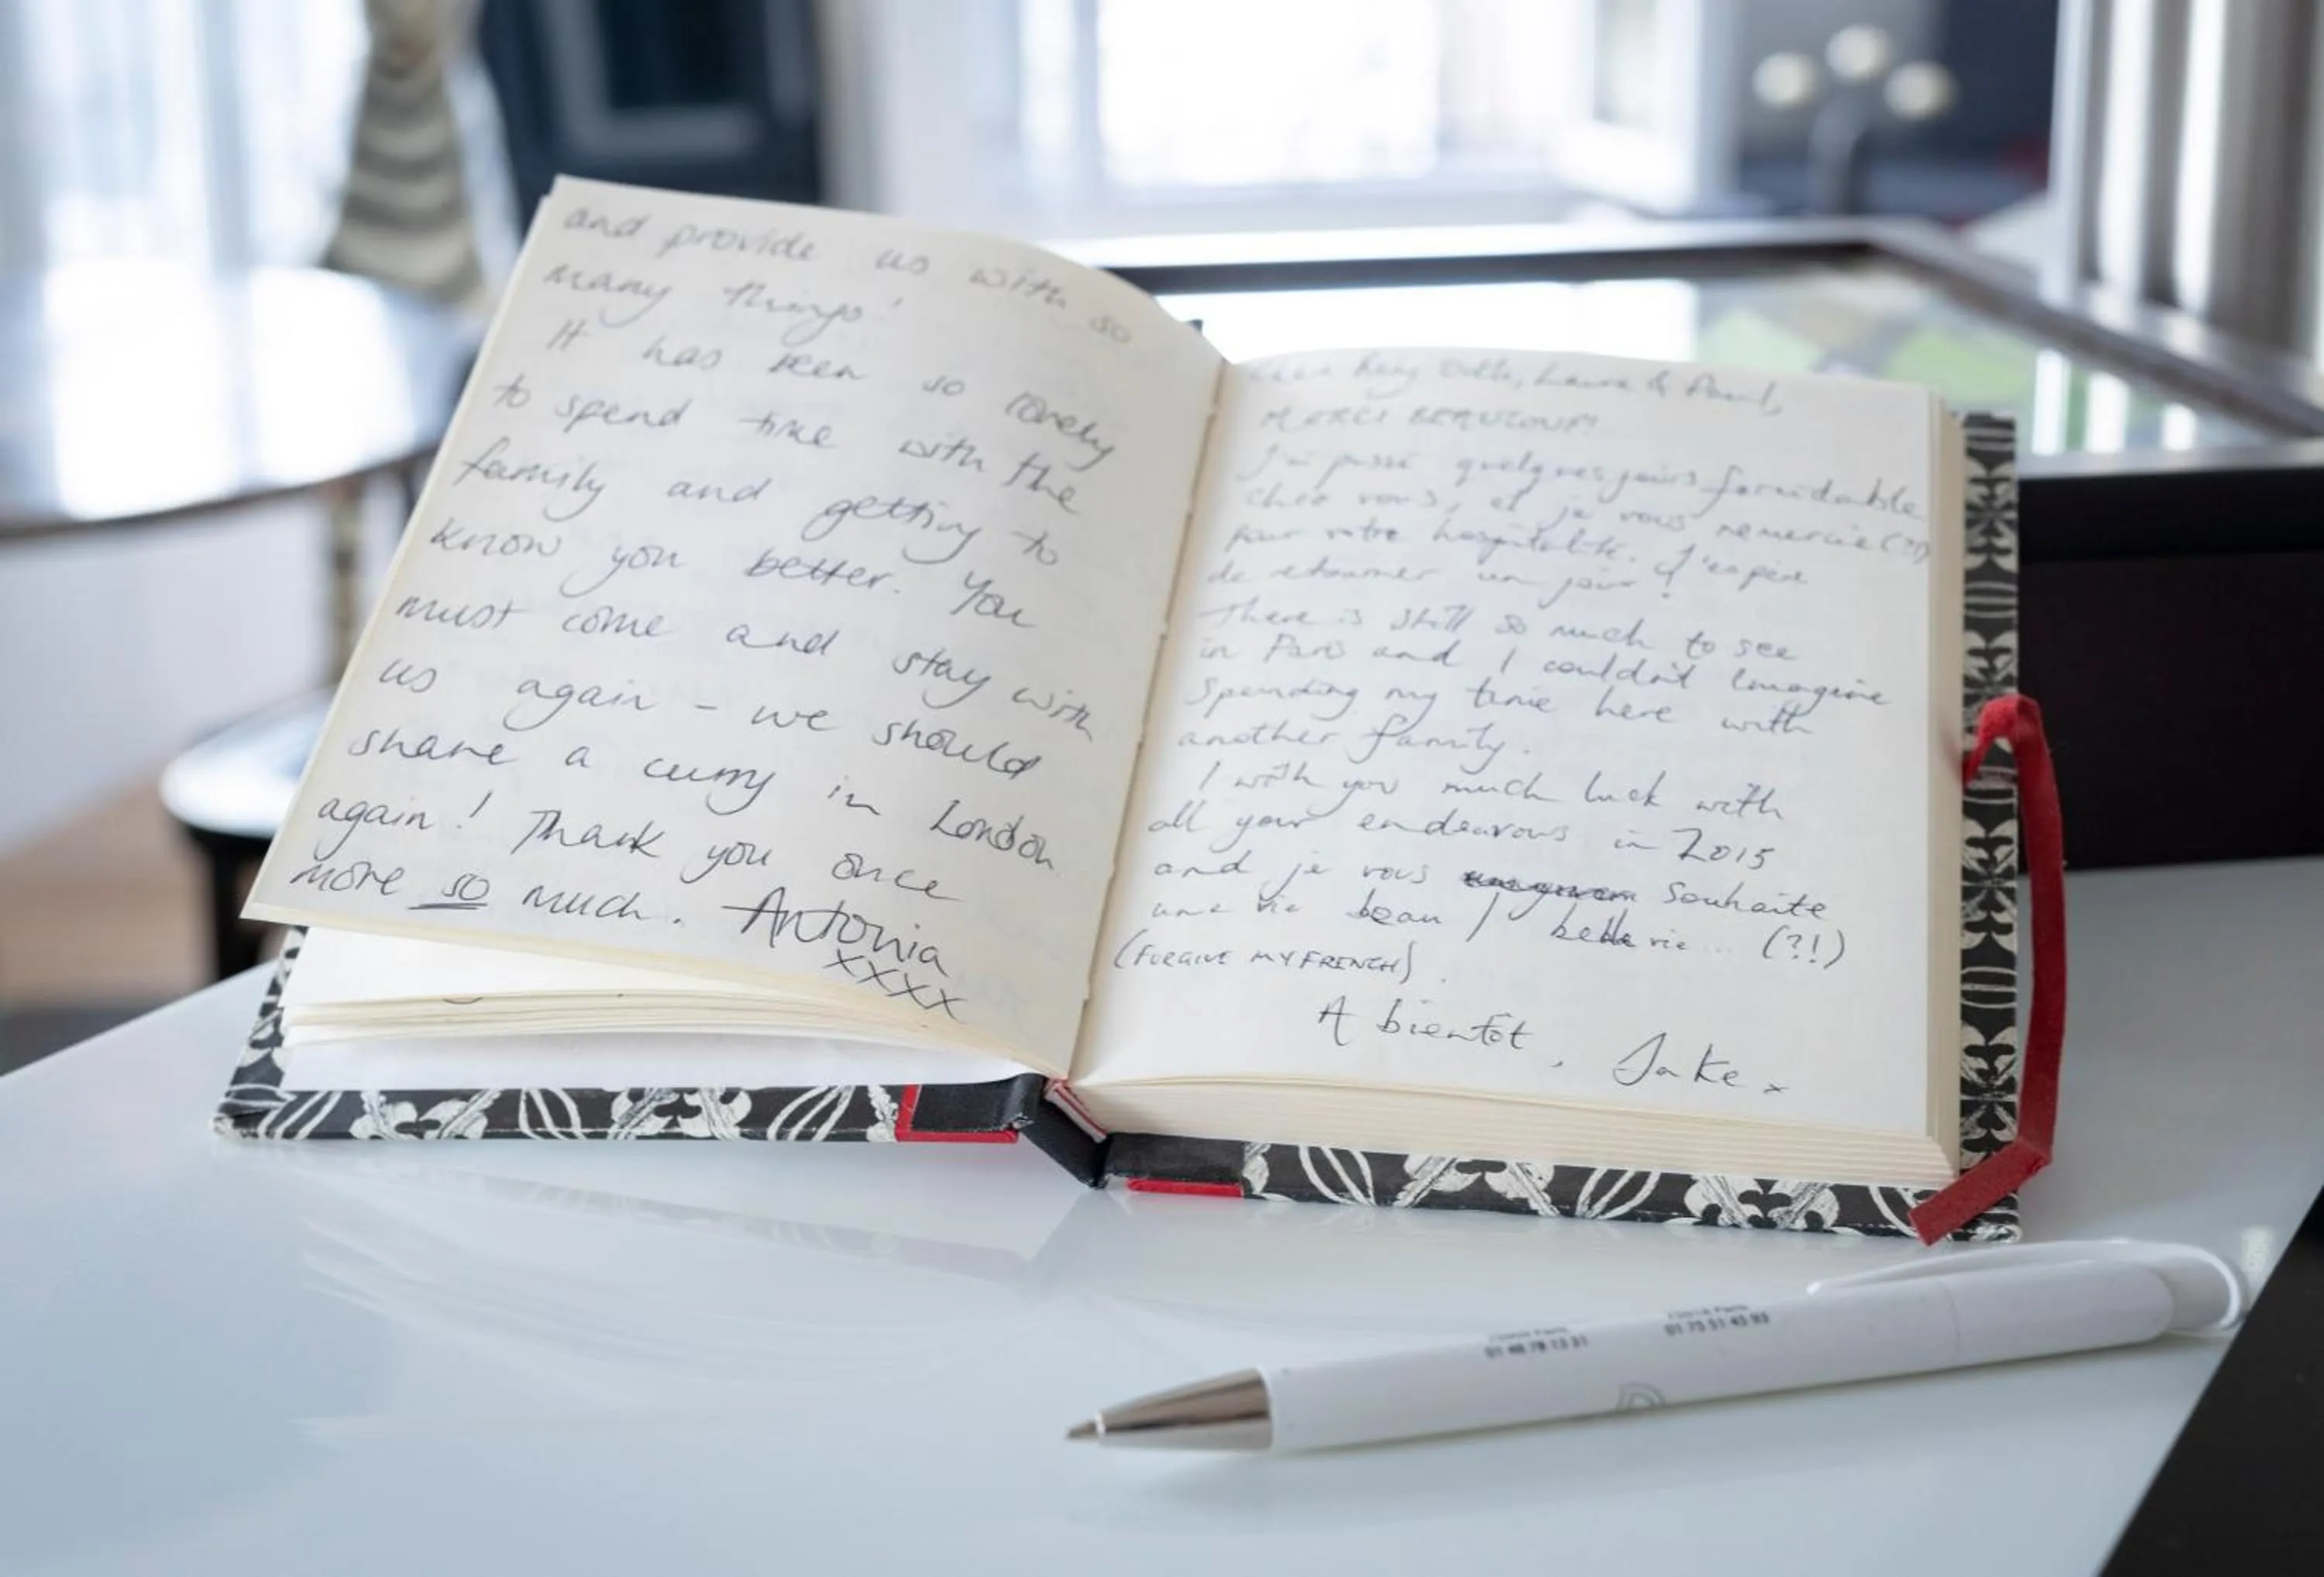 and provide us with so
many things!
It has been so lovely
to spend time with the
family and getting to
know you better. You
must come and stay with
us again - we should
share a curry in London
again! Thank you once
more so much. Antonia
xxxx
Laure & Paul,
MERCI BEAUCOUP!
J'ai passé quelques jours formidable
chez vous, et je vous remercie (?!)
pour votre hospitalité. J'espère
de retourner un jour!
There is still so much to see
in Paris and I couldn't imagine
spending my time here with
another family.
I wish you much luck with
all your endeavours in 2015
and je vous souhaite
une vie beau / belle vie... (?!)
(FORGIVE MY FRENCH).
A bientôt, Jake x